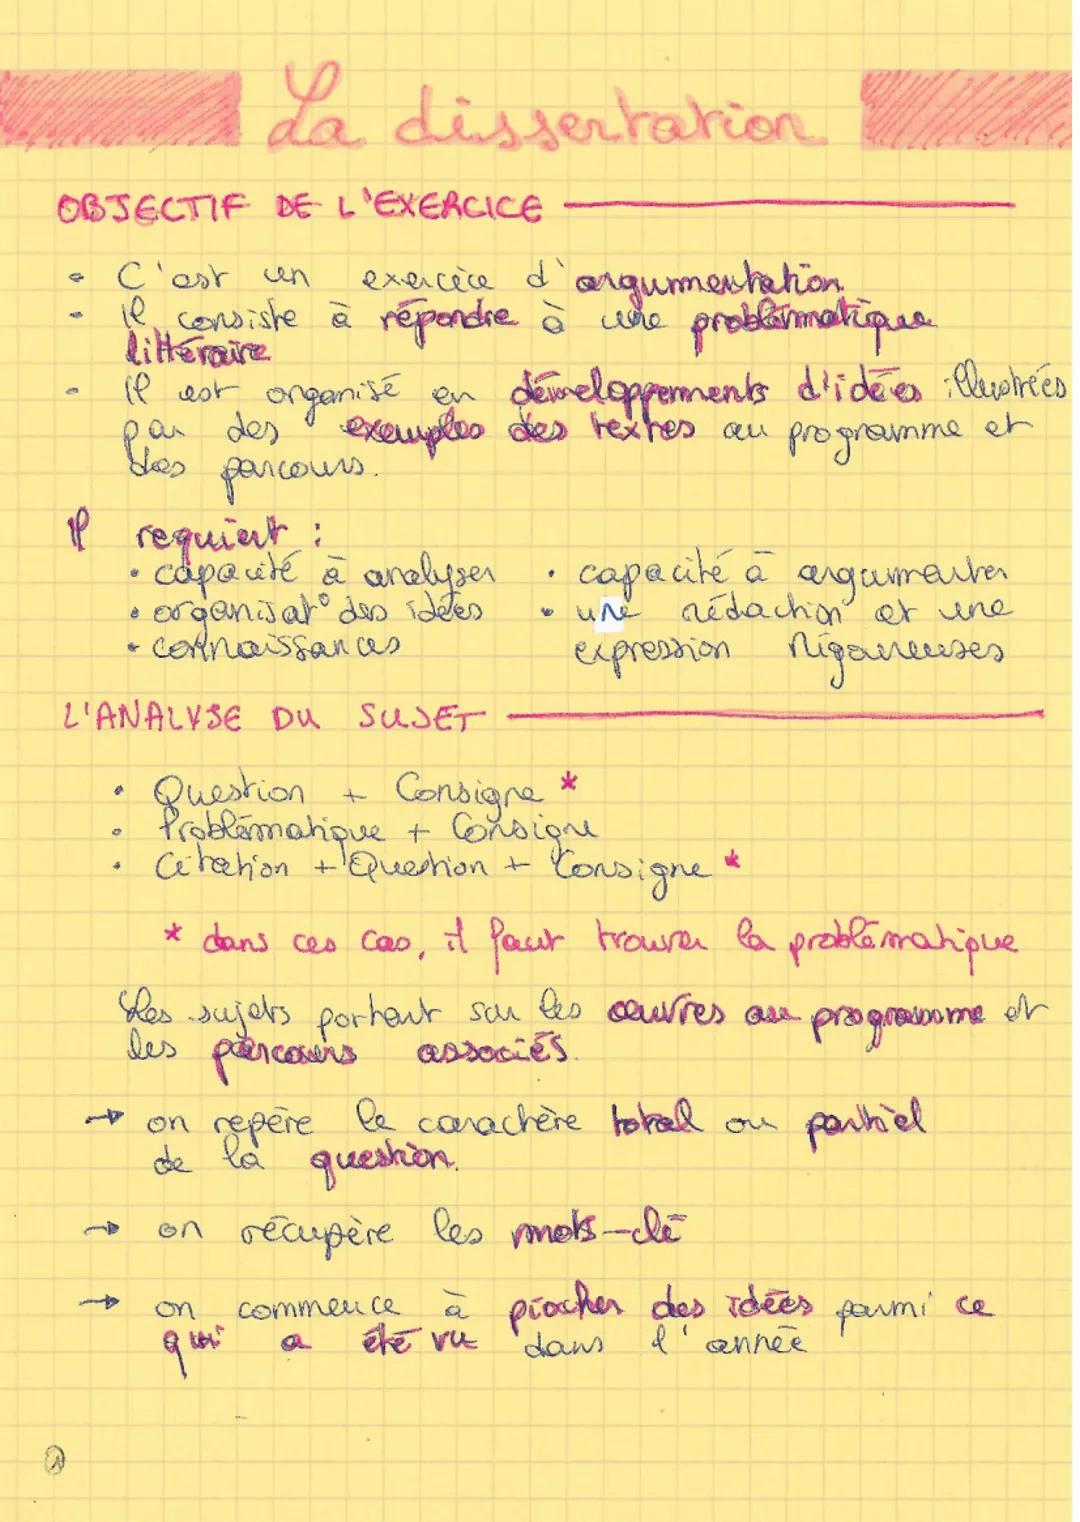 La dissertation
OBJECTIF DE L'EXERCICE
• C'est un exercice d'argumentation
• Il consiste à répondre à une problématique
littéraire
• Il est organisé en développements d'idées illustrés
par des exemples des textes au programme et
des parcours.
Il requiert :
• capacité à analyser
• organisat° des idées
• connaissances
• capacité à argumenter
• une rédaction et une
expression rigoureuses
L'ANALYSE DU SUJET
• Question + Consigne *
• Problématique + Consigne
• Citation + Question + Consigne *
* dans ces cas, il faut trouver la problématique
Les sujets portent sur les œuvres au programme et
les parcours associés.
→ on repère le caractère total ou partiel
de la question.
→ on récupère les mots-clé
→ on commence à piocher des idées parmi ce
qui a été vu dans l'année
1